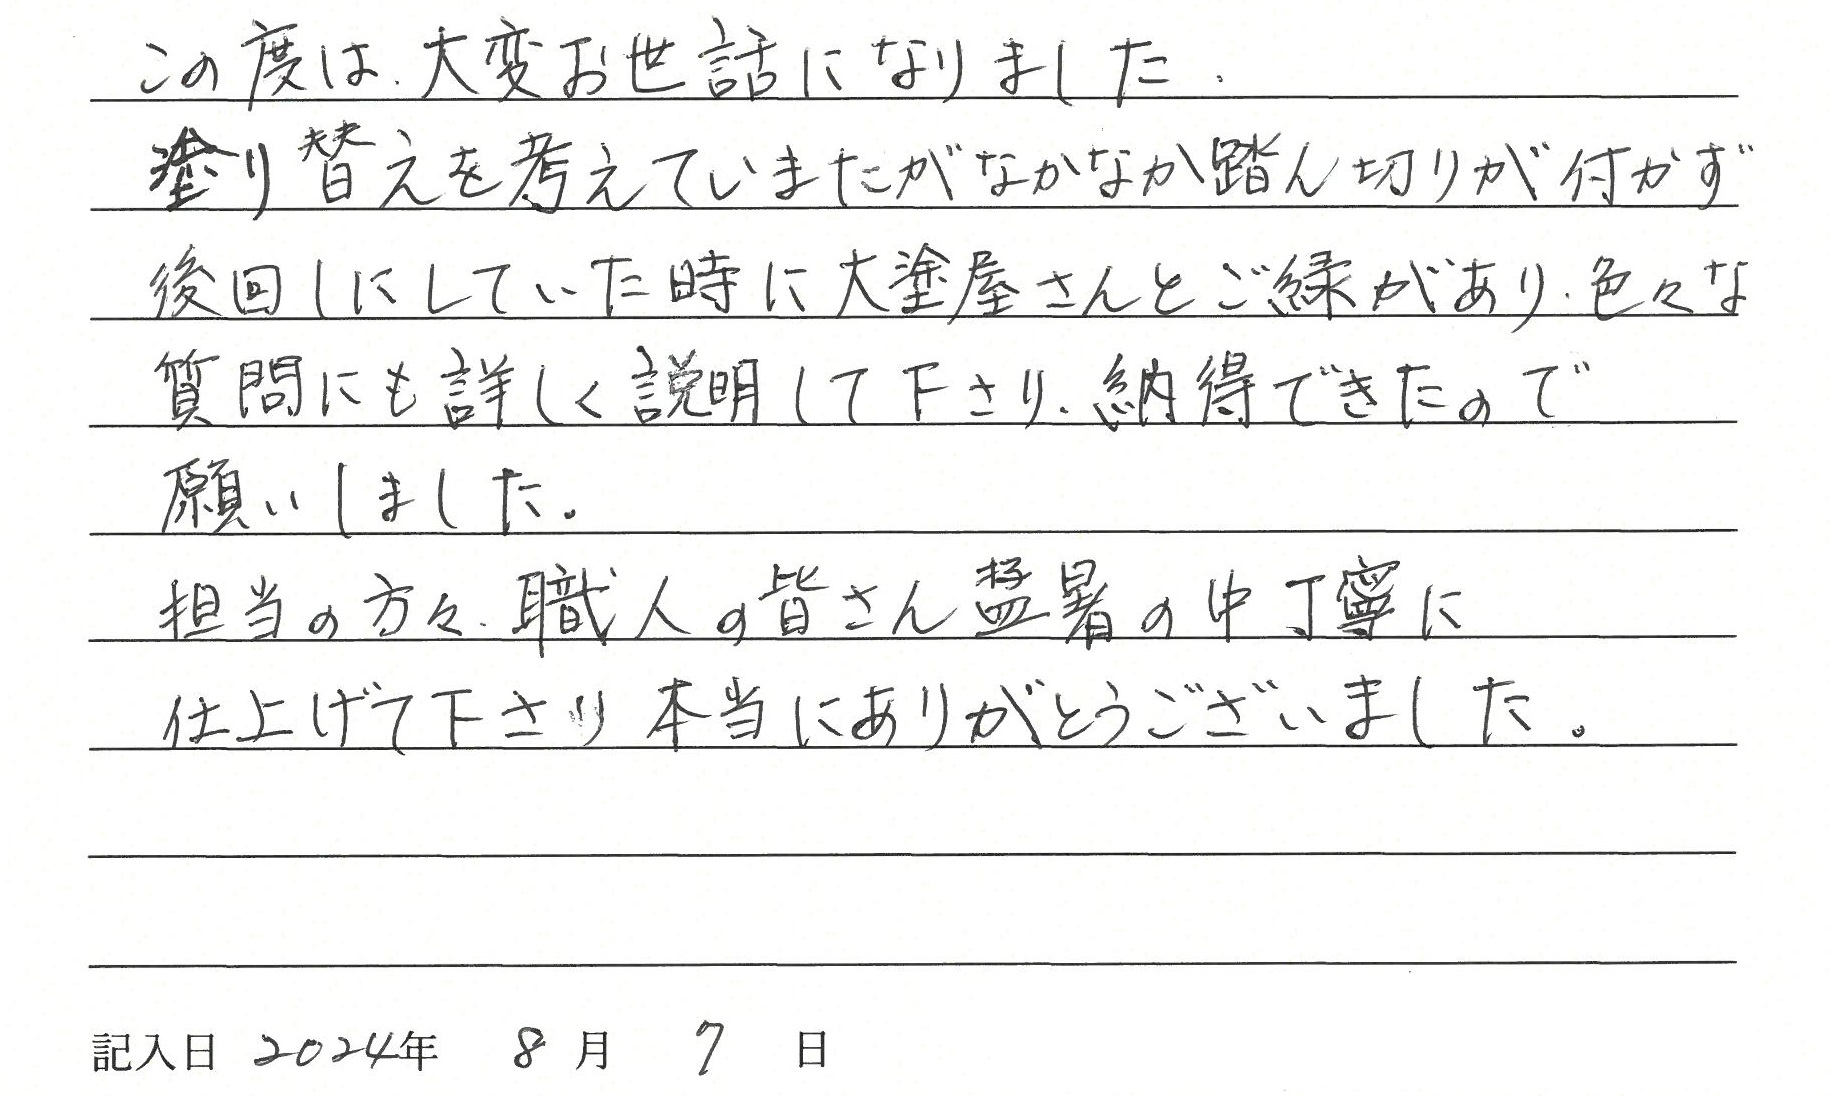 この度は、大変お世話になりました。
塗り替えを考えていまたがなかなか踏ん切りが付かず
後回しにしていた時に大塗屋さんとご縁があり、色々な
質問にも詳しく説明して下さり、納得できたので
願いしました。
担当の方々、職人の皆さん猛暑の中丁寧に
仕上げて下さり本当にありがとうございました。
記入日 2024年 8月 7日